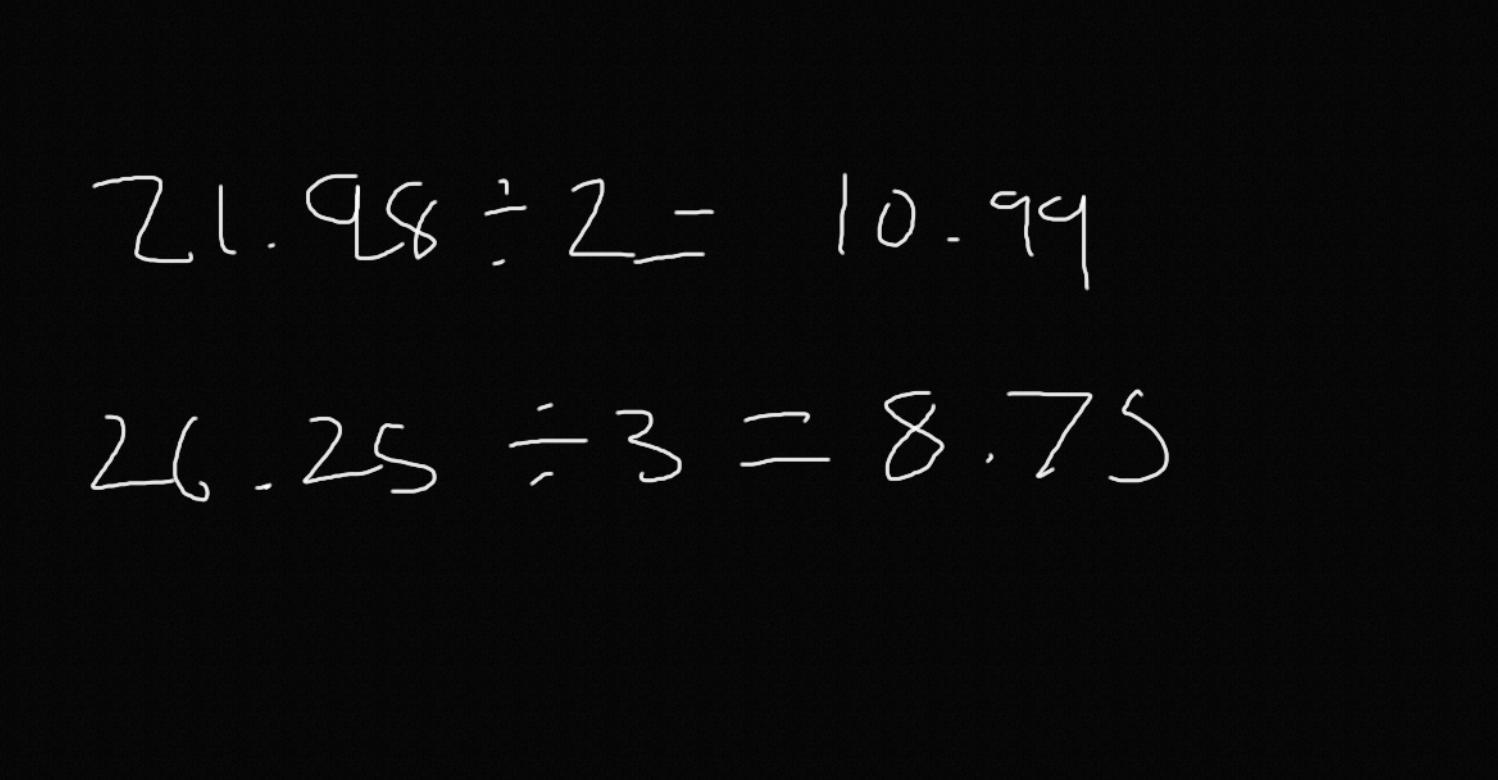 21.98 ÷ 2 = 10.99
26.25 ÷ 3 = 8.75